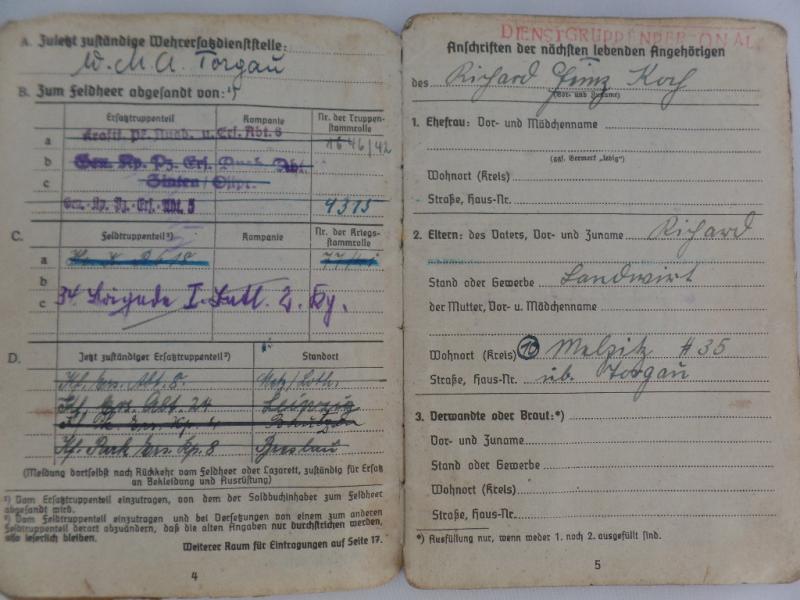 A. Zuletzt zuständige Wehrersatzdienststelle:
W. M. A. Torgau
B. Zum Feldheer abgesandt von:¹)
Ersatztruppenteil Kompanie Nr. der Truppenstammrolle
a Kraftf. Pk. Ausb. u. Ers. Abt. 8 1646/42
b Gen. Kp. Pz. Ers. Ausb. Abt.
c Sinten/Ostpr.
Gen. Kp. Pz. Ers. Abt. 5 4315
C. Feldtruppenteil²) Kompanie Nr. der Kriegsstammrolle
a
b
c 34 Brigade I. Batl. 2. Kg.
D. Jetzt zuständiger Ersatztruppenteil²) Standort
Kf. Ers. Abt. 5. Metz/Loth.
Kf. Ers. Abt. 24 Leipzig
Kf. Park Ers. Kp. 8 Breslau
(Meldung dortselbst nach Rückkehr vom Feldheer oder Lazarett, zuständig für Ersatz
an Bekleidung und Ausrüstung)
¹) Vom Ersatztruppenteil einzutragen, von dem der Soldbuchinhaber zum Feldheer
abgesandt wird.
²) Vom Feldtruppenteil einzutragen und bei Versetzungen von einem zum anderen
Feldtruppenteil derart abzuändern, daß die alten Angaben nur durchstrichen werden,
also leserlich bleiben.
Weiterer Raum für Eintragungen auf Seite 17.
4
DIENSTGRUPPE
Anschriften der nächsten lebenden Angehörigen
des Richard Heinz Koch
(Vor- und Zuname)
1. Ehefrau: Vor- und Mädchenname
(ggf. Vermerk „ledig")
Wohnort (Kreis)
Straße, Haus-Nr.
2. Eltern: des Vaters, Vor- und Zuname Richard
Stand oder Gewerbe Landwirt
der Mutter, Vor- u. Mädchenname
Wohnort (Kreis) 10 Melpitz # 35
Straße, Haus-Nr. üb. Torgau
3. Verwandte oder Braut:*)
Vor- und Zuname
Stand oder Gewerbe
Wohnort (Kreis)
Straße, Haus-Nr.
*) Ausfüllung nur, wenn weder 1. noch 2. ausgefüllt sind.
5